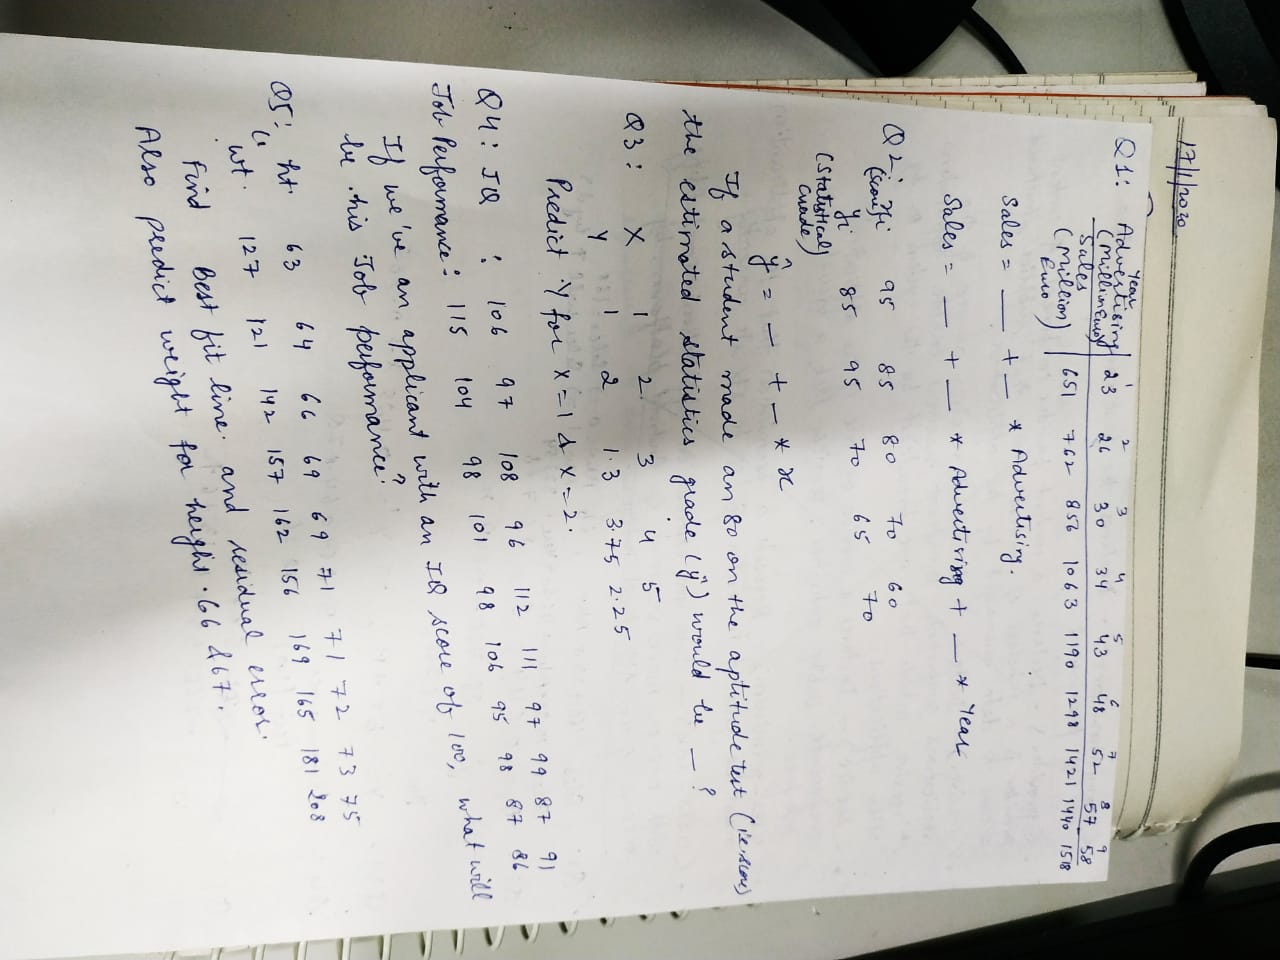 17/1/2020
Year 1 2 3 4 5 6 7 8 9
Q1: Advertising (Million Euro) 23 26 30 34 43 48 52 57 58
Sales (Million Euro) 651 762 856 1063 1190 1298 1421 1440 1518
Sales = __ + __ * Advertising.
Sales = __ + __ * Advertising + __ * Year
Q2: xi (score) 95 85 80 70 60
yi 85 95 70 65 70
(Statistical Grade)
ŷ = __ + __ * x
If a student made an 80 on the aptitude test (i.e. score)
the estimated statistics grade (ŷ) would be __ ?
Q3: X 1 2 3 4 5
Y 1 2 1.3 3.75 2.25
Predict Y for X=1 & X=2.
Q4: IQ : 106 97 108 96 112 111 97 99 87 91
Job Performance: 115 104 98 101 98 106 95 98 87 86
If we've an applicant with an IQ score of 100, what will
be his Job performance?
Q5: ht. 63 64 66 69 69 71 71 72 73 75
wt. 127 121 142 157 162 156 169 165 181 208
Find Best fit line. and residual error.
Also predict weight for height .66 & 67.